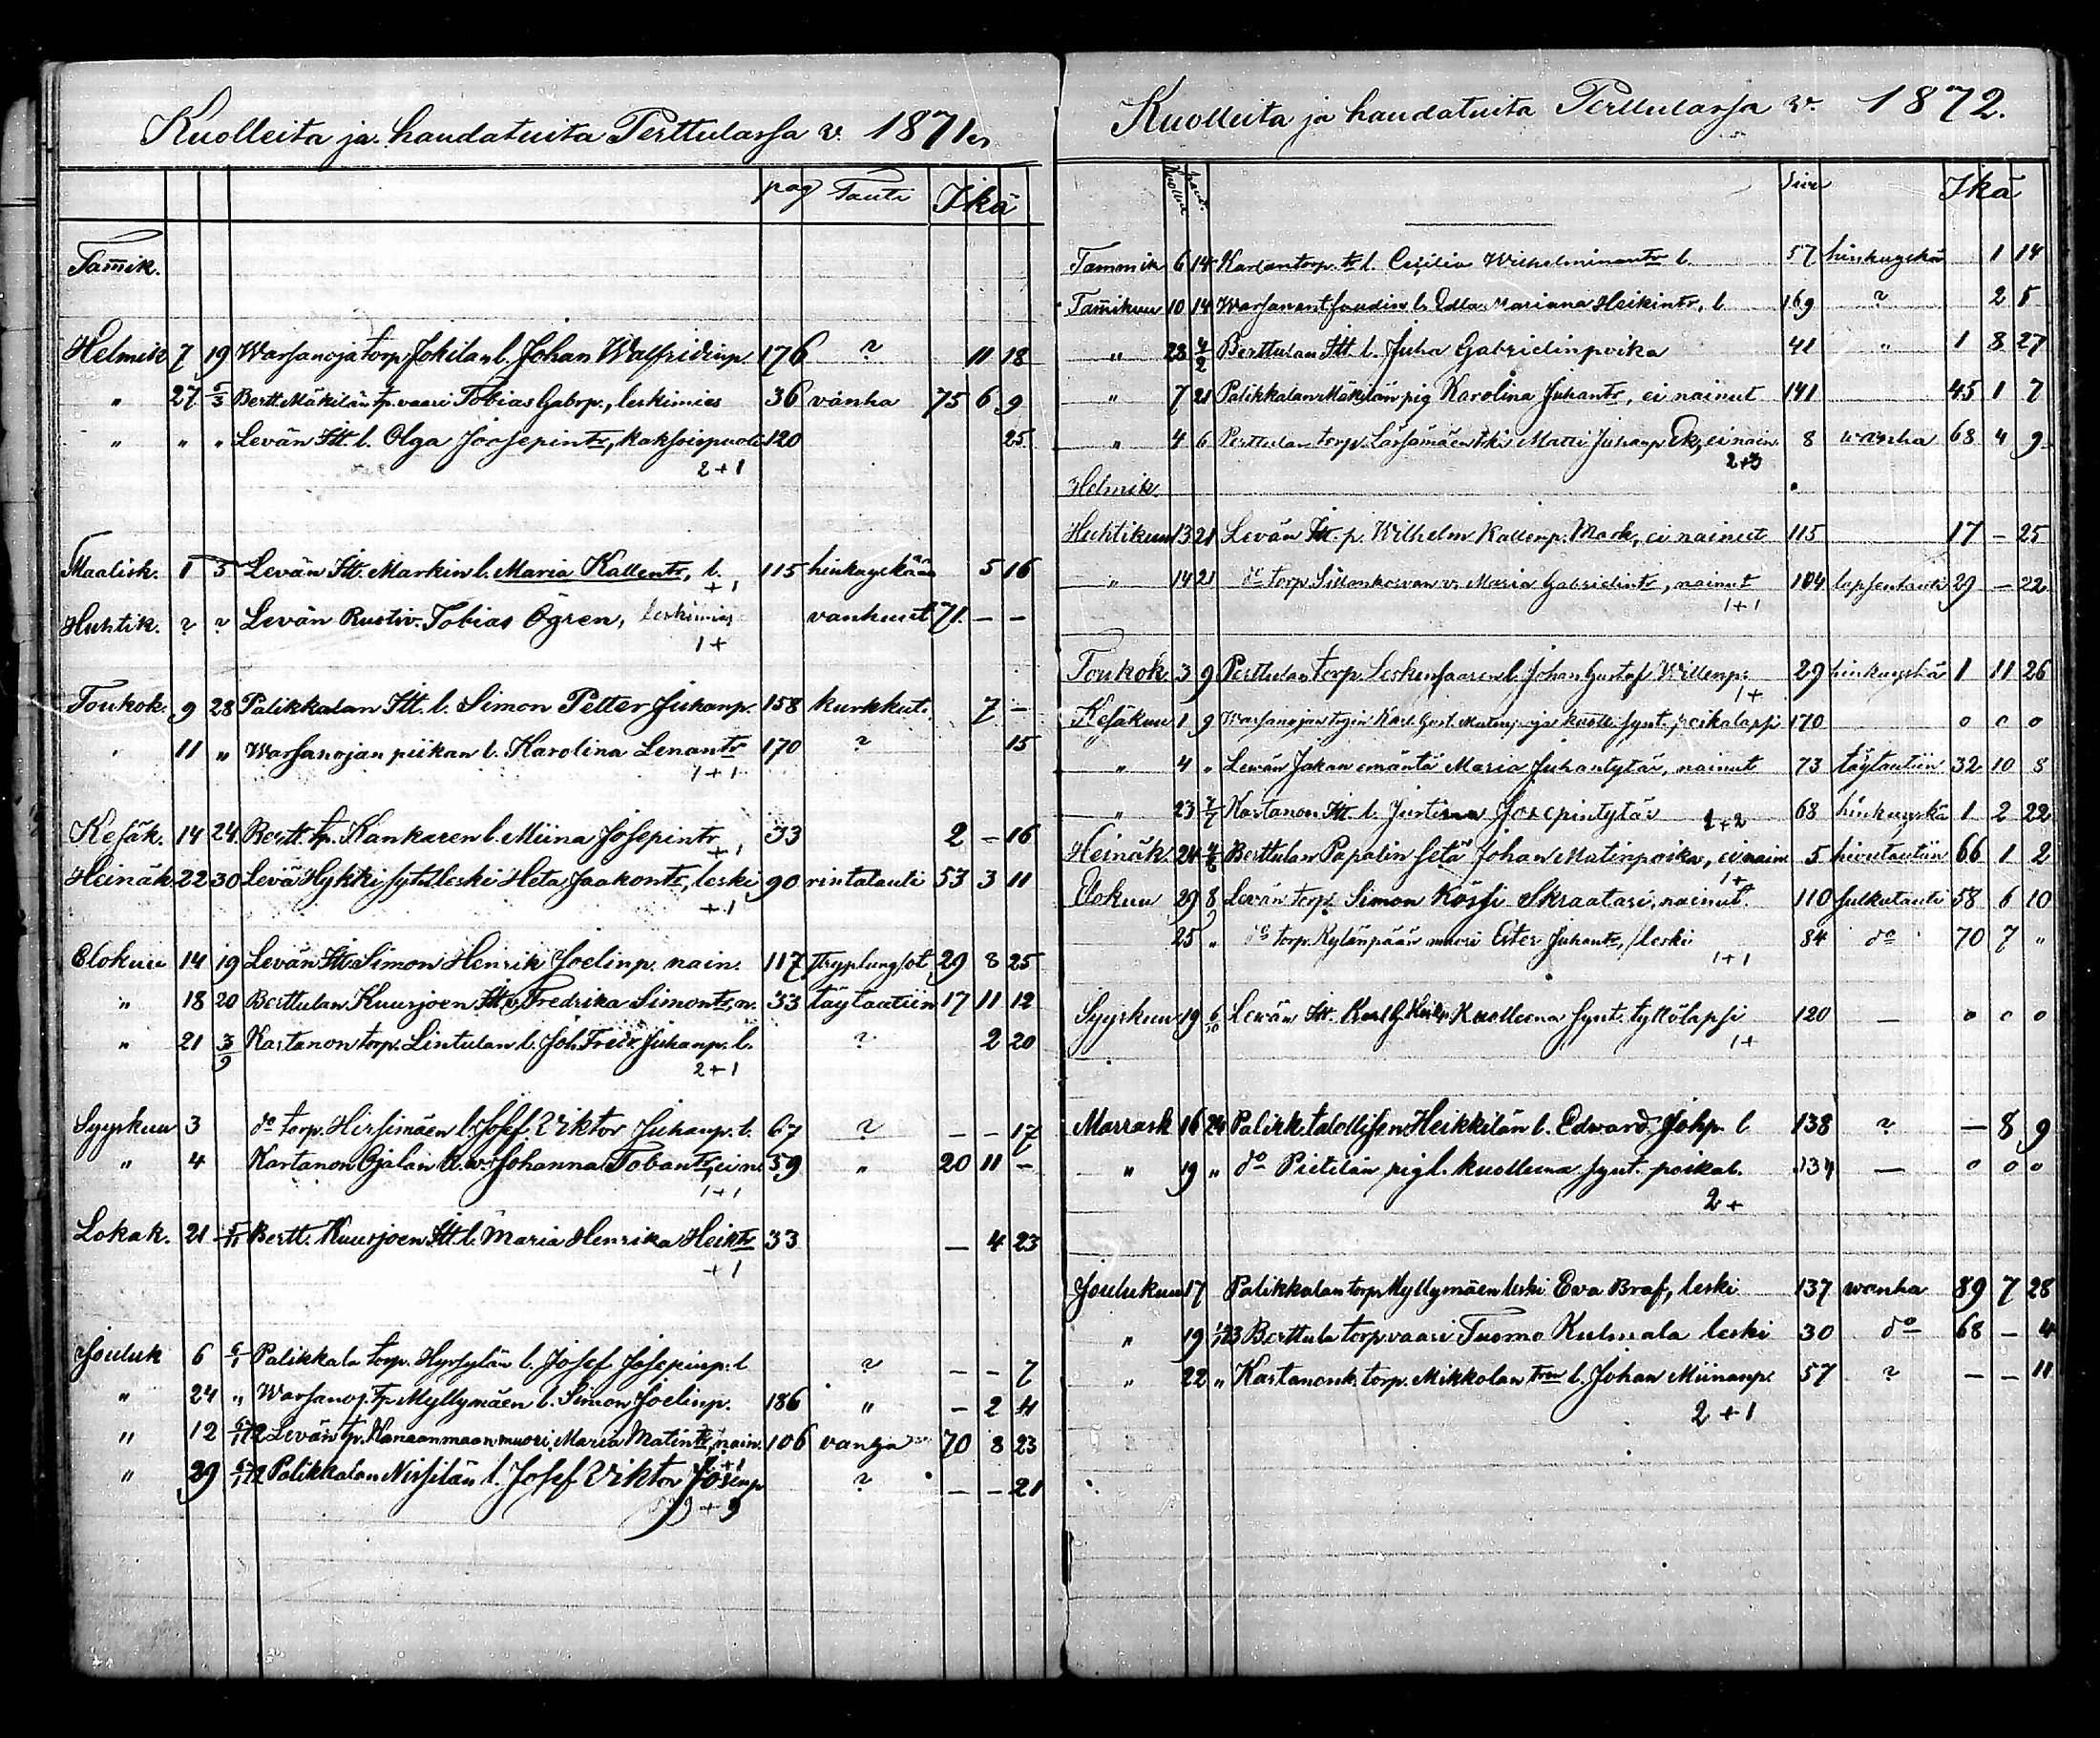 Kuolleita ja haudatuita Perttulassa v. 1871
pag Tauti Ikä
Tam̄ik.
Helmik 7 19 Warsanoja torp. Jokilan l. Johan Walfridinp. 176 ? 11 18
" 27 5/3 Bertt. Mäkilän tp. vaari Tobias Gabrp., leskimies 36 vanha 75 6 9
" " " Levän Itt. l. Olga Joosepintr, kaksoispuoli 120 25
2+1
Maalisk. 1 5 Levän Itt. Markin l. Maria Kallentr, l. 115 hinkuyskään 5 16
+1
Huhtik. ? ? Levän Ruotiv. Tobias Ögren, leskimies vanhuut 71 – –
1+
Toukok. 9 28 Palikkalan Itt. l. Simon Petter Juhanp. 158 kurkkut. 7 –
11 " Warsanojan piikan l. Karolina Lenantr 170 ? 15
1+1
Kesäk. 14 24 Bertt. tp. Kankaren l. Miina Josepintr 33 2 – 16
+1
Heinäk 22 30 Levä Hykki sytleski Heta Jaakontr, leski 90 rintatauti 53 3 11
+1
Elokuu 14 19 Levän Itt. Simon Henrik Joelinp. nain. 117 29 8 25
" 18 20 Berttulan Kuusjoen Itt. v. Fredrika Simontr, n. 33 täytautiin 17 11 12
" 21 3/9 Kartanon torp. Lintulan l. Joh. Fredr. Juhanp. l. ? 2 20
2+1
Syyskuu 3 do torp. Hirsimäen l. Josef Viktor Juhanp. l. 67 ? – – 17
" 4 Kartanon Ojalan Johanna Tobantr, ei n. 59 " 20 11 –
1+1
Lokak. 21 5/11 Bertt. Kuusjoen Itt. l. Maria Henrika Heiktr 33 – 4 23
+1
Jouluk 6 6/1 Palikkala torp. Hyrsylän l. Josef Josepinp. l ? – – 7
" 24 " Warsanoj. tp. Myllymäen l. Simon Joelinp. 186 " – 2 4
" 12 6/1 72 Levän tp. Kanaanmaan muori Maria Matintr, nain. 106 vanha 70 8 23
" 29 6/1 72 Palikkalan Nissilän l. Josef Viktor Josenp ? – – 21
9+9
Kuolleita ja haudatuita Perttulassa v. 1872.
Kuollut haud. Sivu Ikä
Tammik 6 14 Kartantorp. tr l. Cecilia Wilhelminantr l. 57 hinkuyskä 1 14
Tam̄ikuu 10 14 l. Edla Mariana Heikintr, l 169 ? 2 5
" 28 4/2 Berttulan Itt. l. Juha Gabrielinpoika 41 " 1 8 27
" 7 21 Palikkalan Mäkilän pig Karolina Juhantr, ei nainut 141 45 1 7
" 4 6 Perttulan torp. Matti Juhanp Ek, ei nain. 8 wanha 68 4 9
2+3
Helmik.
Huhtikuu 13 21 Levän Itt. p. Wilhelm Kallenp. Mark, ei nainut 115 17 – 25
" 14 21 do torp. Sillankorvan v. Maria Gabrielintr, nainut 104 lapsentauti 29 – 22
1+1
Toukok 3 9 Perttulan torp. Leskensaaren l. Johan Gustaf Willenp. 29 hinkuyskä 1 11 26
1+
Kesäkuu 1 9 Warsanojan Karl Gust. synt. poikalapsi 170 0 0 0
" 4 " Levän Jakan emäntä Maria Juhantytär, nainut 73 täytautiin 32 10 8
" 23 7/7 Kartanon Itt. l. Justiina Josepintytär 68 hinkuyskä 1 2 22
1+2
Heinäk. 24 4/8 Berttulan Papalin setä Johan Matinpoika, ei nain. 5 66 1 2
1+
Elokuu 29 8/9 Levän torp. Simon Kössi Skraatari, nainut. 110 sulkutauti 58 6 10
25 " do torp. Kylänpään muori Ester Juhantr, leski 84 do 70 7 "
1+1
Syyskuu 19 6/10 Levän Itt. Karl G. Heikp. Kuolleena synt. tyttölapsi 120 – 0 0 0
1+
Marrask 16 24 Palikk. talollisen Heikkilän l. Edward Johp. l 138 ? – 8 9
" 19 " do Pietilän pig l. kuolleena synt. poikal. 134 – 0 0 0
2+
Joulukuu 17 Palikkalan torp. Myllymäen leski Eva Braf, leski 137 wanha 89 7 28
" 19 1/1 73 Berttula torp. vaari Tuomo Kulmala leski 30 do 68 – 4
" 22 " Kartanonk. torp. Mikkolan l. Johan Miinanp. 57 ? – – 11
2+1